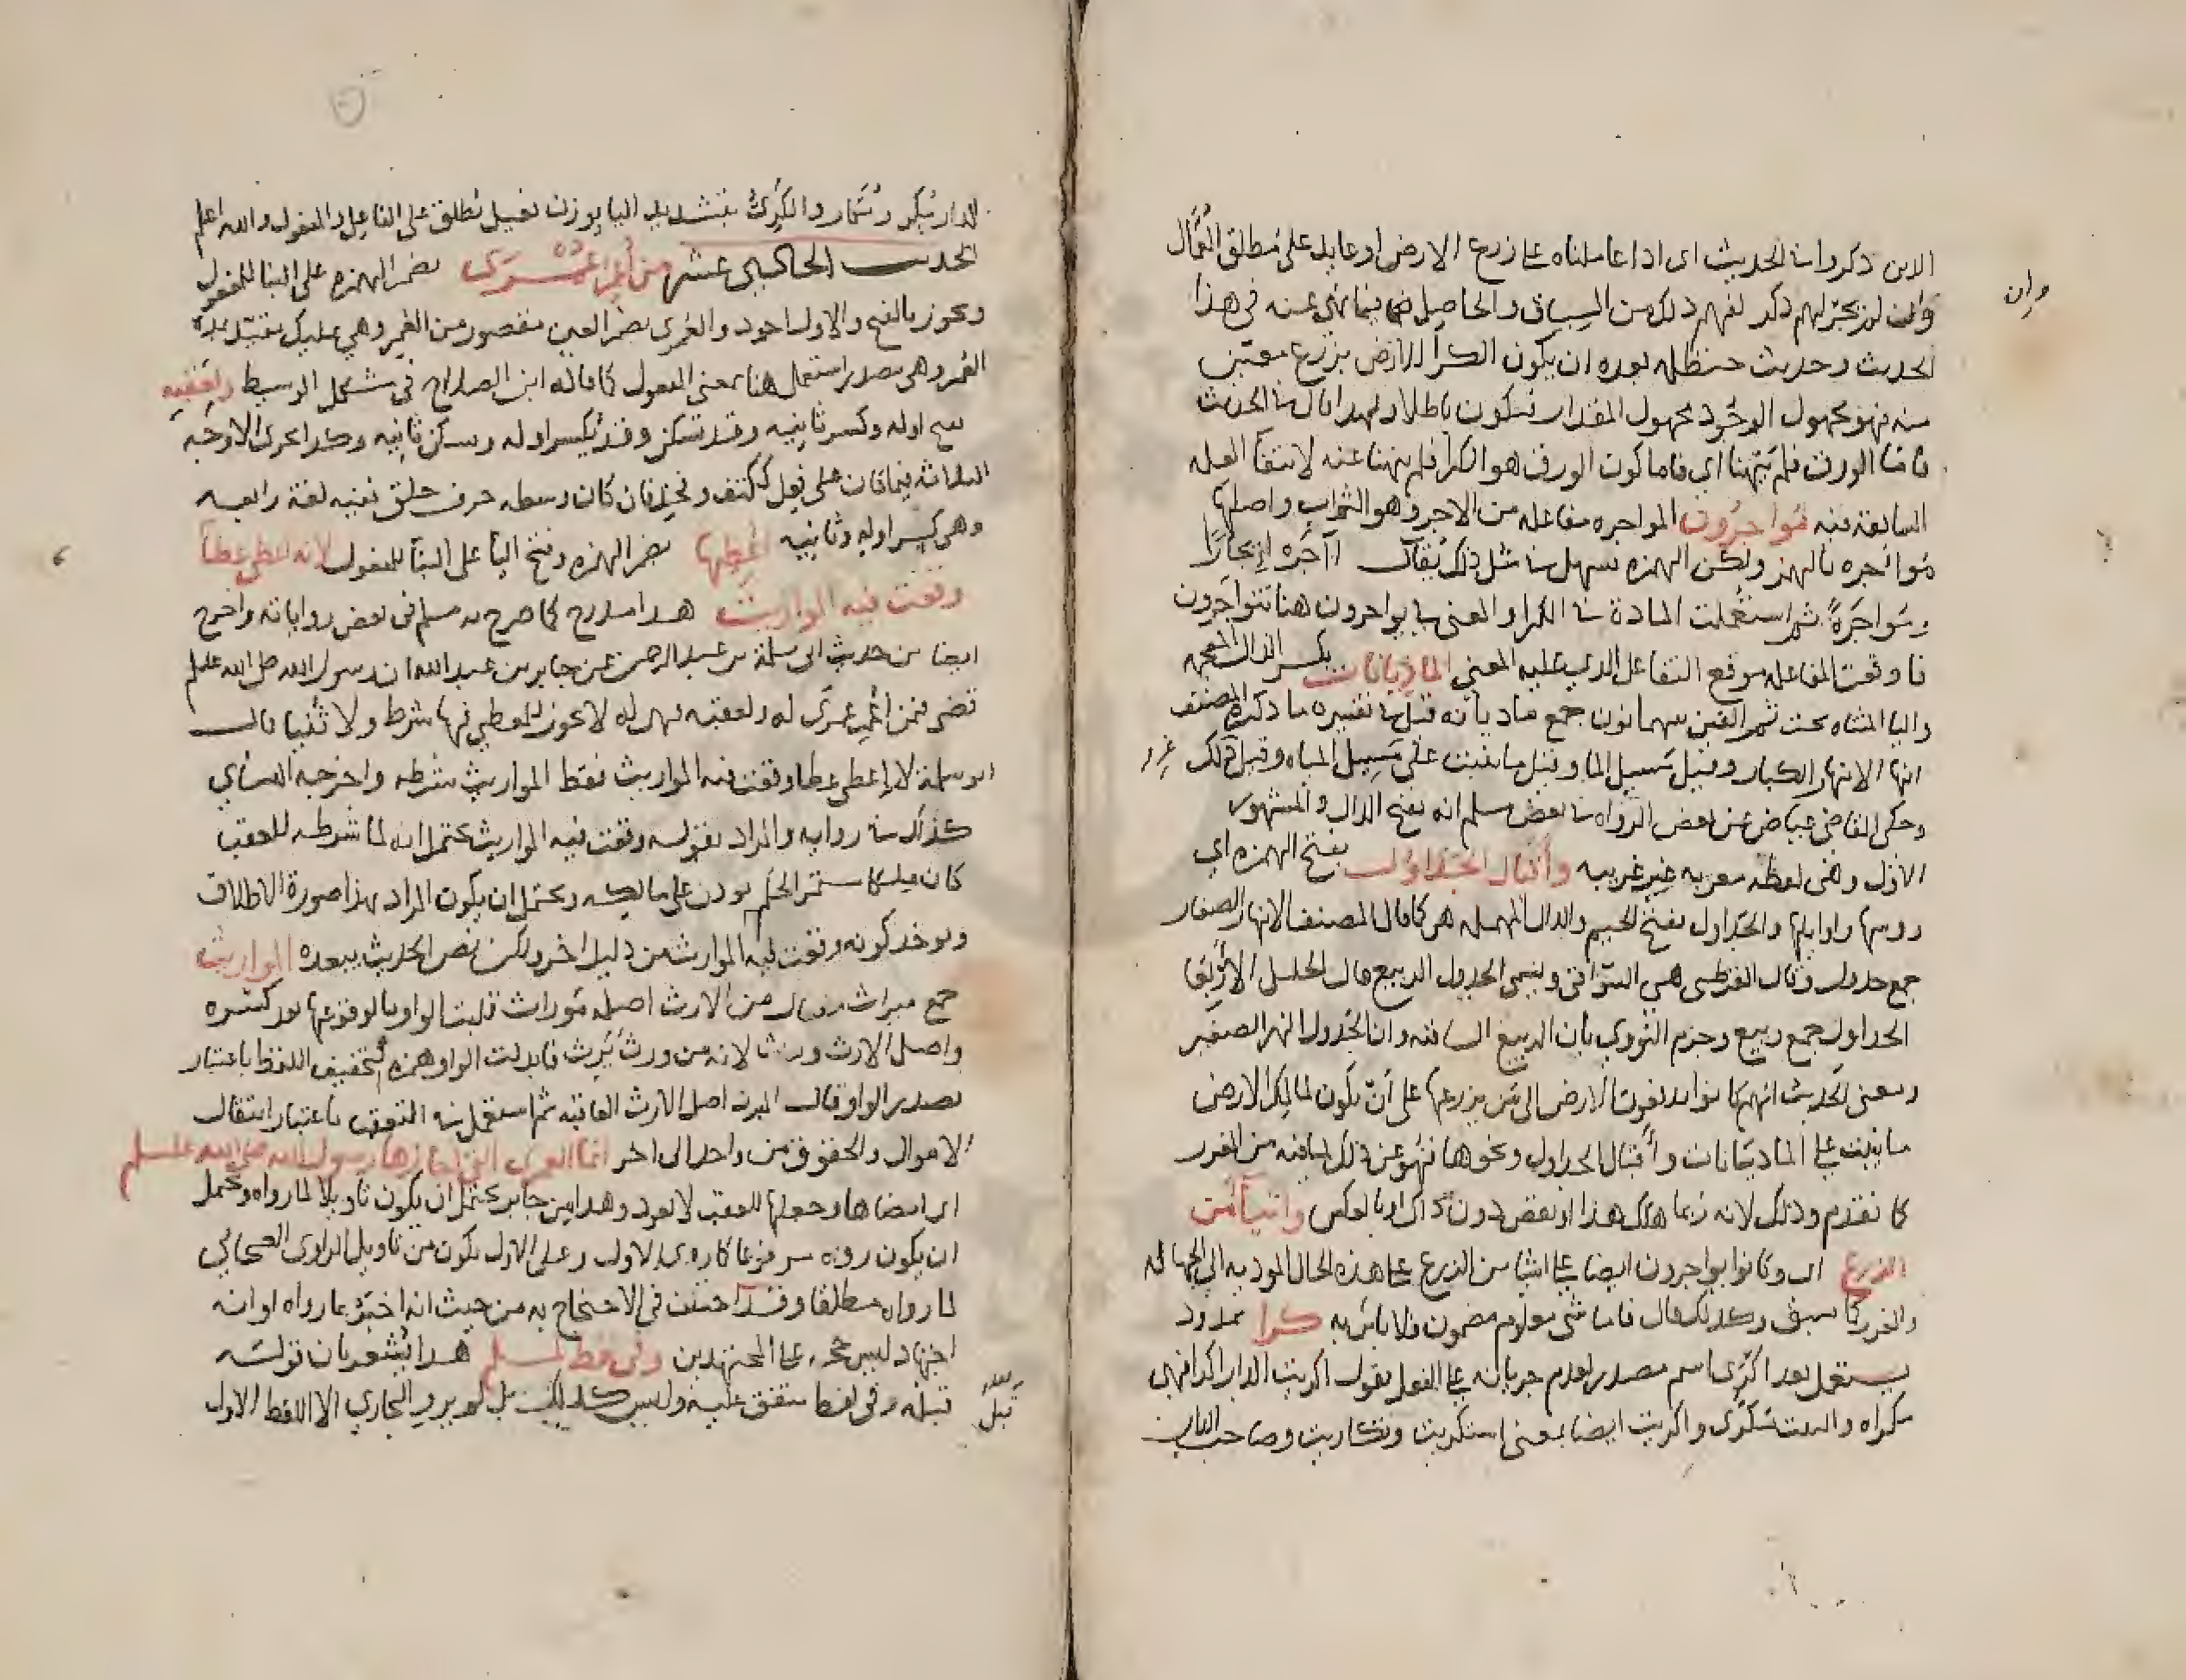 الذين ذكروا في الحديث اي اذا عاملناه على زرع الارض او عايد على مطلق العمال
وان لم يجر لهم ذكر لفهم ذلك من السياق والحاصل فيما نهي عنه في هذا
وان
الحديث وحديث حنظله بعده ان يكون الكرا للارض بزرع معين
منه فهو مجهول الوجود مجهول المقدار فيكون باطلا ولهذا قال في الحديث
فاما الورق فلم ينهنا اي فاما كون الورق هو الكرا فلم ينهنا عنه لانتفا العله
السابقة فيه تؤاجرون المواجره مفاعله من الاجر وهو الثواب واصلها
مؤاجره بالهمز ولكن الهمزه تسهل في مثل ذلك يقال اآجره ايجارا
ومواجرة ثم استعملت المادة في الكرا والمعنى في يواجرون هنا تتواجرون
فاوقعت المفاعله موقع التفاعل الذي عليه المعنى الماذيانات بكسر الذال المعجمه
واليا المثناه تحت ثم الفين بينهما نون جمع ماذيانه قيل في تفسيره ما ذكره المصنف
انها الانهار الكبار وقيل مسيل الما وقيل ما ينبت على مسيل المياه وقيل غير ذلك
وحكى القاضي عياض عن بعض الرواه في بعض مسلم انه بفتح الذال والمشهور
الاول وهي لفظه معربه غير عربيه واقبال الجداول بفتح الهمزه اي
روسها واوايلها والجداول بفتح الجيم والدال المهمله هي كما قال المصنف الانهار الصغار
جمع جدول وقال القرطبي هي السواقي ويسمى الجدول الربيع قال الخليل الاربعا
الجداول جمع ربيع وجزم النووي بان الربيع الساقيه وان الجدول النهر الصغير
ومعنى الحديث انهم كانوا يدفعون الارض الى من يزرعها على ان يكون لمالك الارض
ما ينبت على الماذيانات واقبال الجداول ونحوها فنهو عن ذلك لما فيه من الغرر
كما تقدم وذلك لانه ربما هلك هذا او بعض دون ذاك او بالعكس واشيا من
الزرع اي وكانوا يواجرون ايضا على اشيا من الزرع على هذه الحال الموديه الى الجهاله
والغرر كما سبق وكذلك قال فاما شي معلوم مضمون فلا باس به كرا ممدود
يستعمل بعد اكترى اسم مصدر لعدم جريانه على الفعل يقول اكريت الدابر اكرا فهي
مكراه والبيت مكرى واكريت ايضا بمعنى استكريت وتكاريت وصاحب الدار
الدار مكر ومكار والكرى بتشديد اليا بوزن فعيل يطلق على الفاعل والمفعول والله اعلم
الحديث الحادي عشر من اعمر عمرى بضم الهمزه على البنا للمفعول
ويجوز بالفتح والاول اجود والعمرى بضم العين مقصور من العمر وهي تمليك مقيد بمده
العمر وهي مصدر استعمل هنا بمعنى المفعول كما قاله ابن الصلاح في مشكل الوسيط ولعقبه
بفتح اوله وكسر ثانيه وقد تسكن وقد يكسر اوله ويسكن ثانيه وكذا تجري الاوجه
الثلاثه فيما كان على فعل ككتف وفخذ فان كان وسطه حرف حلق ففيه لغة رابعه
وهي كسر اوله وثانيه اعطيها بضم الهمزه وفتح اليا على البنا للمفعول لانه اعطى عطا
وقعت فيه المواريث هذا مدرج كما صرح به مسلم في بعض رواياته واخرج
ايضا من حديث ابي سلمة بن عبد الرحمن عن جابر بن عبد الله ان رسول الله صلى الله عليه وسلم
قضى فيمن اعمر عمرى له ولعقبه فهي له لا يجوز للمعطي فيها شرط ولا ثنيا قال
ابو سلمة لانه اعطى عطا وقعت فيه المواريث فقطع المواريث شرطه واخرجه النساي
كذلك في روايه والمراد بقوله وقعت فيه المواريث يحتمل انه لما شرطه للعقب
كان ملكا مستمر الحكم يورث على مالكه ويحتمل ان يكون المراد بهذا صورة الاطلاق
ويوخذ كونه وقعت فيه المواريث من دليل اخر ولكن نص الحديث يبعده المواريث
جمع ميراث مفعال من الارث اصله موراث قلبت الواو يا لوقوعها بعد كسره
واصل الارث ورث لانه من ورث يرث فابدلت الواو همزه لتخفيف اللفظ باعتبار
تصدر الواو وقال المبرد اصل الارث العاقبه ثم استعمل في التعقب باعتبار انتقال
الاموال والحقوق من واحد الى اخر انما العمرى التي اجازها رسول الله صلى الله عليه وسلم
اي امضاها وجعلها للعقب لا تعود وهذا من جابر يحتمل ان يكون تاويلا لما رواه ويحتمل
ان يكون رواه مرفوعا كما روى الاول وعلى الاول يكون من تاويل الراوي الصحابي
لما رواه مطلقا وقد اختلف في الاحتجاج به من حيث انه اخبر بما رواه او انه
اجتهاد ليس حجه على المجتهدين وفي لفظ لمسلم هذا يشعر بان قوله
قبله وفي لفظ متفق عليه وليس كذلك بل لم يرو البخاري الا اللفظ الاول
قبل